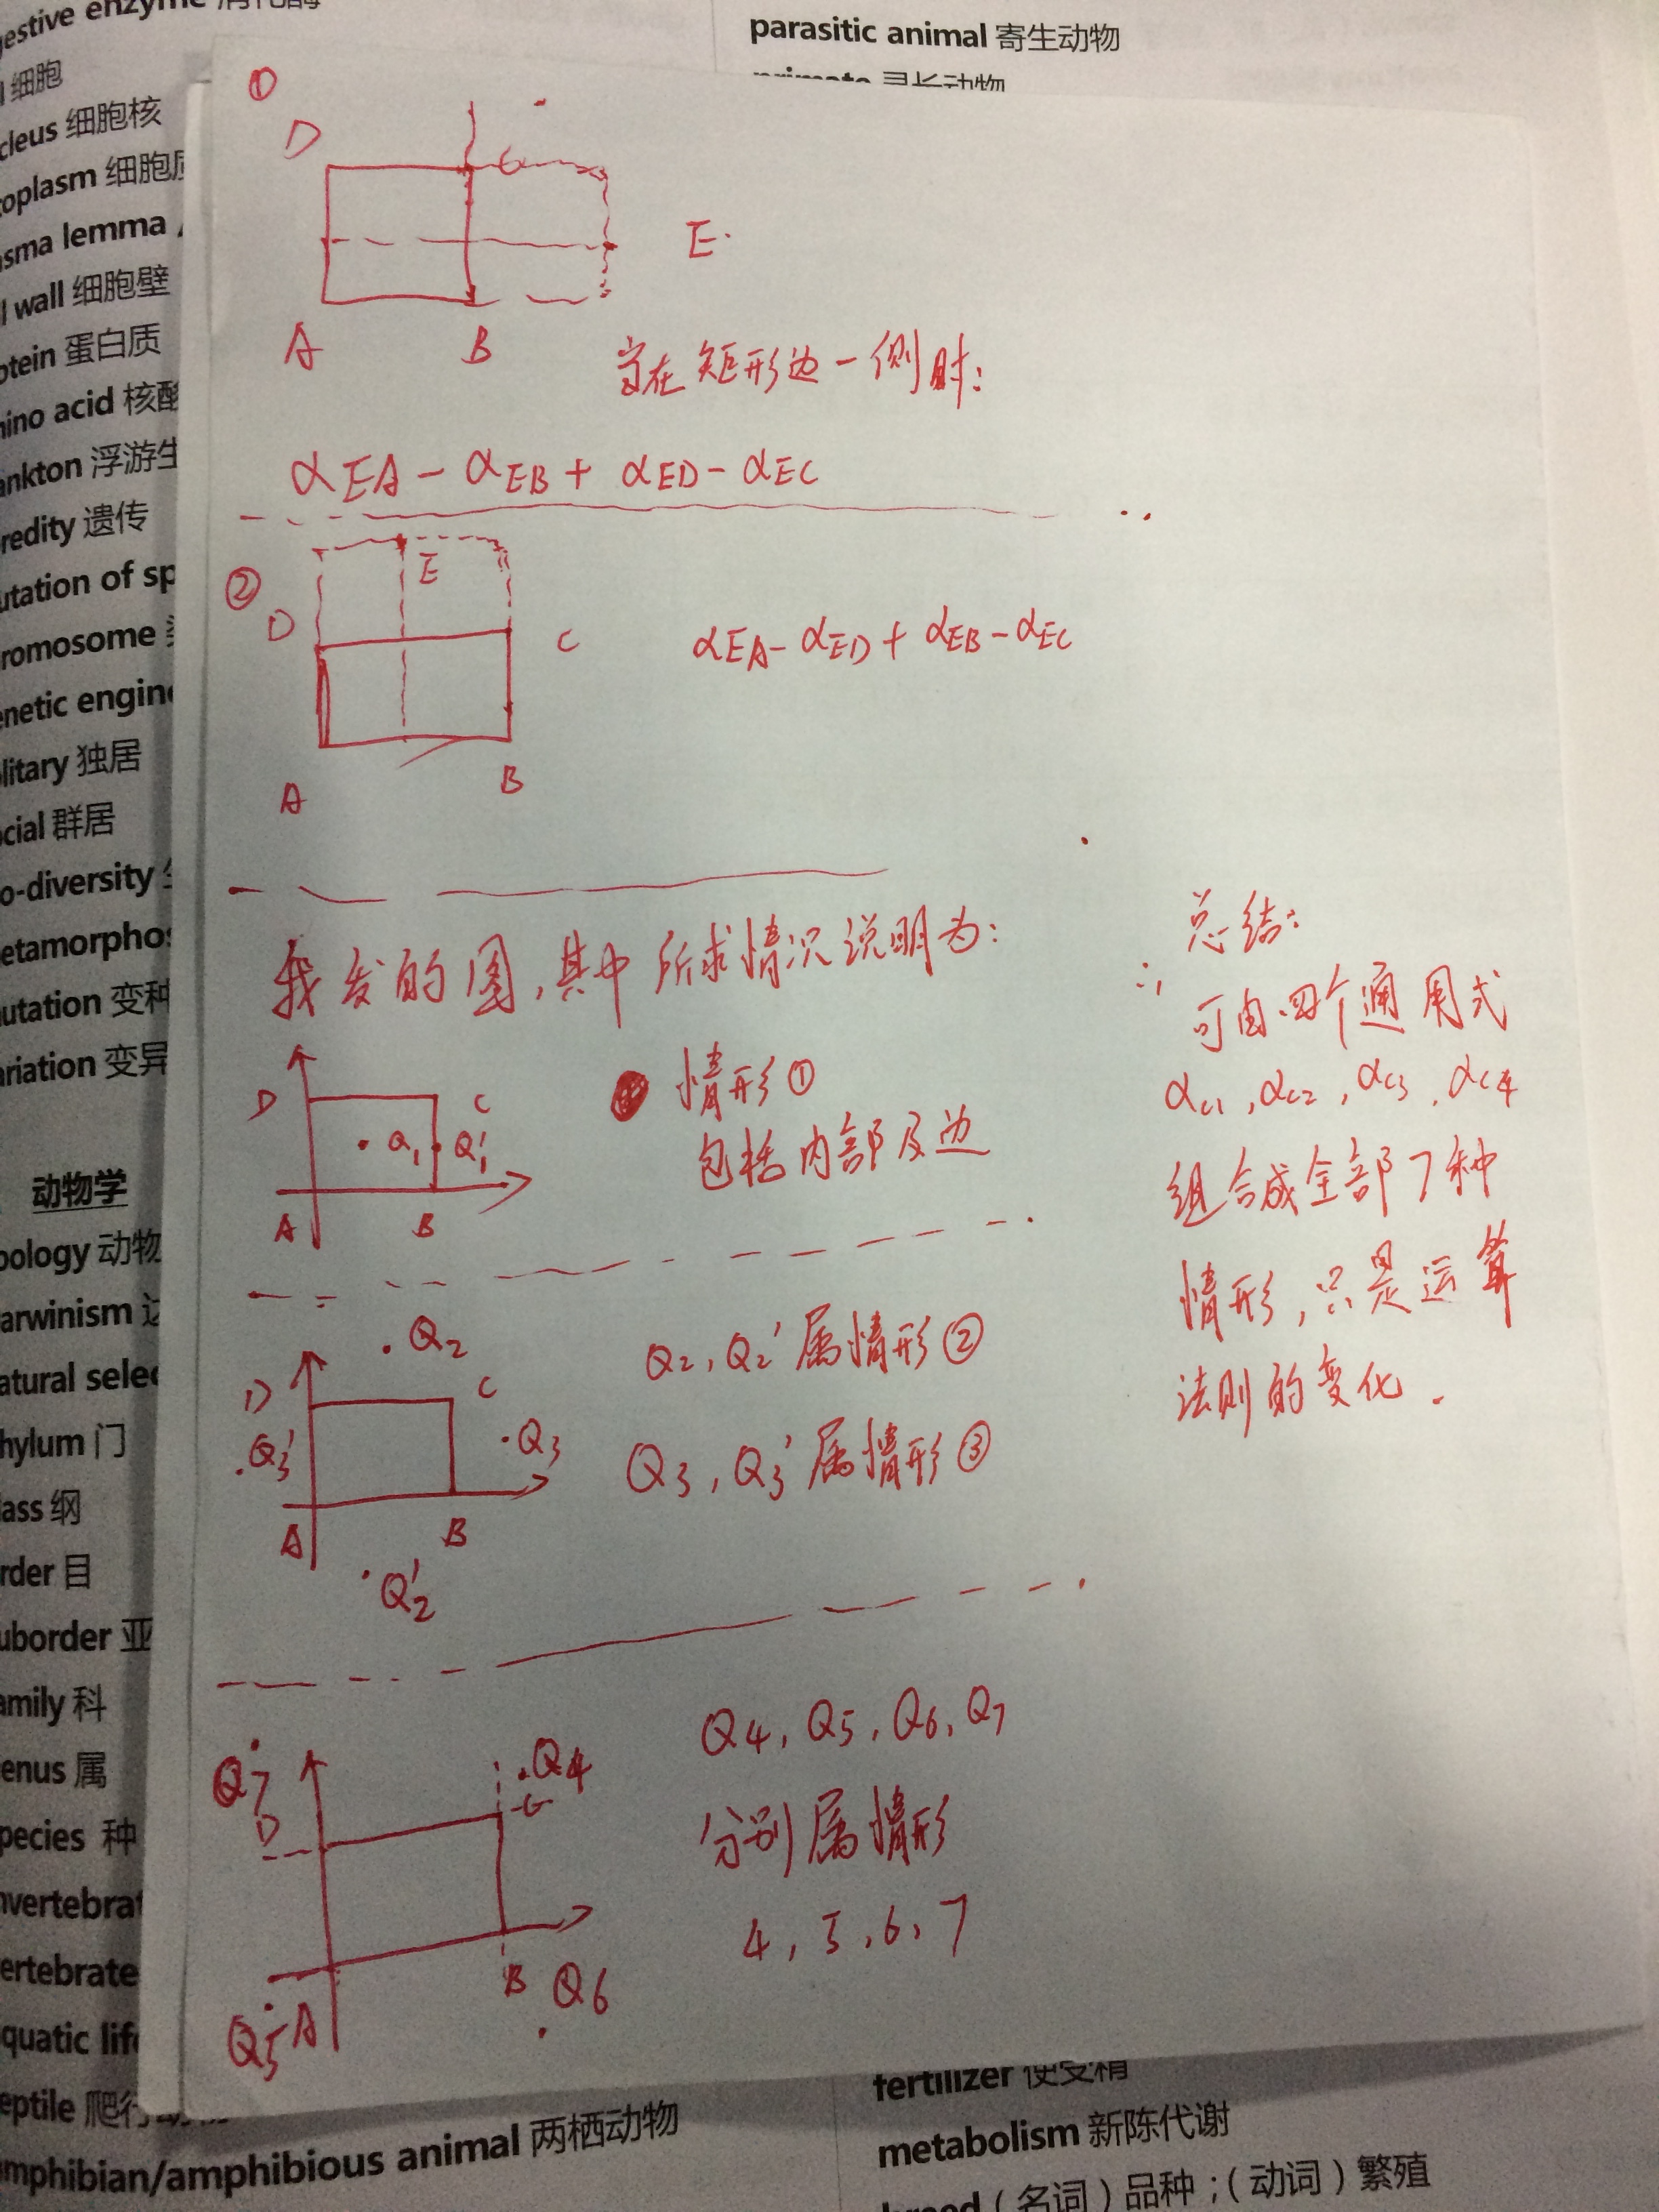 gestive enzyme 消化酶
细胞
cleus 细胞核
toplasm 细胞质
asma lemma
l wall 细胞壁
otein 蛋白质
mino acid 核酸
ankton 浮游生
redity 遗传
utation of sp
romosome
enetic engine
litary 独居
cial 群居
o-diversity
etamorphos
utation 变种
ariation 变异
动物学
oology 动物
arwinism 达
atural selec
hylum 门
lass 纲
rder 目
uborder 亚
amily 科
enus 属
pecies 种
nvertebrat
ertebrate
quatic life
eptile 爬行动物
mphibian/amphibious animal 两栖动物
parasitic animal 寄生动物
primate 灵长动物
①
D
C
E
A B
当在矩形边一侧时:
αEA - αEB + αED - αEC
②
E
D C
αEA - αED + αEB - αEC
A B
我发的图,其中所求情况说明为:
D C
Q1 Q1'
A B
情形①
包括内部及边
Q2
D C
Q3' Q3
A B
Q2'
Q2, Q2' 属情形②
Q3, Q3' 属情形③
Q7 Q4
D C
B Q6
Q5 A
Q4, Q5, Q6, Q7
分别属情形
4, 5, 6, 7
总结:
∴ 可由四个通用式
αc1, αc2, αc3, αc4
组合成全部7种
情形,只是运算
法则的变化.
fertilizer 使受精
metabolism 新陈代谢
breed(名词)品种;(动词)繁殖